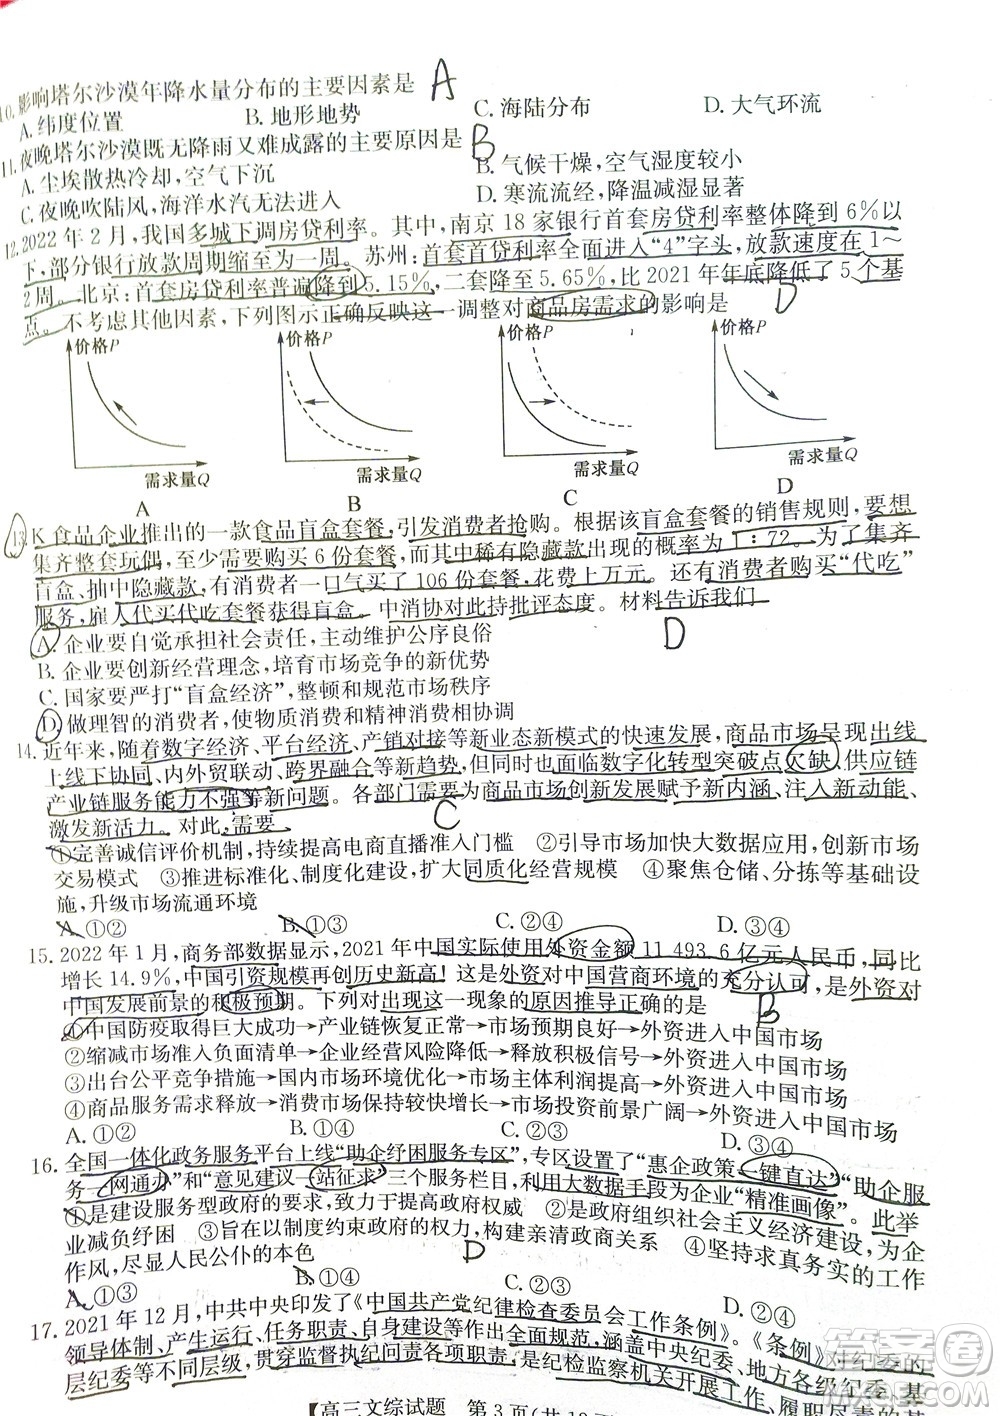 10.影响塔尔沙漠年降水量分布的主要因素是 A
A.纬度位置 B.地形地势 C.海陆分布 D.大气环流
11.夜晚塔尔沙漠既无降雨又难成露的主要原因是 B
A.尘埃散热冷却,空气下沉 B.气候干燥,空气湿度较小
C.夜晚吹陆风,海洋水汽无法进入 D.寒流流经,降温减湿显著
12.2022年2月,我国多城下调房贷利率。其中,南京18家银行首套房贷利率整体降到6%以
下,部分银行放款周期缩至为一周。苏州:首套首贷利率全面进入“4”字头,放款速度在1~
2周。北京:首套房贷利率普遍降到5.15%,二套降至5.65%,比2021年年底降低了5个基
点。不考虑其他因素,下列图示正确反映这一调整对商品房需求的影响是 D
价格P 价格P 价格P 价格P
需求量Q 需求量Q 需求量Q 需求量Q
A B C D
13.K食品企业推出的一款食品盲盒套餐,引发消费者抢购。根据该盲盒套餐的销售规则,要想
集齐整套玩偶,至少需要购买6份套餐,而其中稀有隐藏款出现的概率为1:72。为了集齐
盲盒、抽中隐藏款,有消费者一口气买了106份套餐,花费上万元。还有消费者购买“代吃”
服务,雇人代买代吃套餐获得盲盒。中消协对此持批评态度。材料告诉我们
D
A.企业要自觉承担社会责任,主动维护公序良俗
B.企业要创新经营理念,培育市场竞争的新优势
C.国家要严打“盲盒经济”,整顿和规范市场秩序
D.做理智的消费者,使物质消费和精神消费相协调
14.近年来,随着数字经济、平台经济、产销对接等新业态新模式的快速发展,商品市场呈现出线
上线下协同、内外贸联动、跨界融合等新趋势,但也面临数字化转型突破点欠缺,供应链
产业链服务能力不强等新问题。各部门需要为商品市场创新发展赋予新内涵、注入新动能、
激发新活力。对此,需要 C
①完善诚信评价机制,持续提高电商直播准入门槛 ②引导市场加快大数据应用,创新商品
交易模式 ③推进标准化、制度化建设,扩大同质化经营规模 ④聚焦仓储、分拣等基础设
施,升级市场流通环境
A.①② B.①③ C.②④ D.③④
15.2022年1月,商务部数据显示,2021年中国实际使用外资金额11493.6亿元人民币,同比
增长14.9%,中国引资规模再创历史新高!这是外资对中国营商环境的充分认可,是外资对
中国发展前景的积极预期。下列对出现这一现象的原因推导正确的是 B
①中国防疫取得巨大成功→产业链恢复正常→市场预期良好→外资进入中国市场
②缩减市场准入负面清单→企业经营风险降低→释放积极信号→外资进入中国市场
③出台公平竞争措施→国内市场环境优化→市场主体利润提高→外资进入中国市场
④商品服务需求释放→消费市场保持较快增长→市场投资前景广阔→外资进入中国市场
A.①② B.①④ C.②③ D.③④
16.全国一体化政务服务平台上线“助企纾困服务专区”,专区设置了“惠企政策一键直达”“助企服
务一网通办”和“意见建议一站征求”三个服务栏目,利用大数据手段为企业“精准画像”。此举
①是建设服务型政府的要求,致力于提高政府权威 ②是政府组织社会主义经济建设,为企
业减负纾困 ③旨在以制度约束政府的权力,构建亲清政商关系 ④坚持求真务实的工作
作风,尽显人民公仆的本色 D
A.①③ B.①④ C.②③ D.②④
17.2021年12月,中共中央印发了《中国共产党纪律检查委员会工作条例》。《条例》对纪委
领导体制、产生运行、任务职责、自身建设等作出全面规范,涵盖中央纪委、地方各级纪委、基
层纪委等不同层级,贯穿监督执纪问责各项职责,是纪检监察机关开展工作、履职尽责的基
【高三文综试题 第3页
答案圈